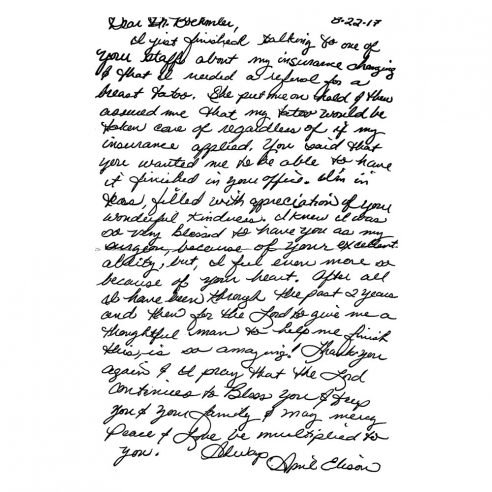 Dear Dr. Buckmiller, 8-22-17
I just finished talking to one of
your staff about my insurance changing
& that I needed a referal for a
breast tatoo. She put me on hold & then
assured me that my tatoo would be
taken care of regardless of if my
insurance applied. You said that
you wanted me to be able to have
it finished in your office. I'm in
tears, filled with appreciation of your
wonderful kindness. I knew I was
so very blessed to have you as my
surgeon, because of your excellent
ability, but, I feel even more so
because of your heart. After all
I have been through the past 2 years
and then for the Lord to give me a
thoughtful man to help me finish
this, is so amazing! Thank you
again & I pray that the Lord
continues to Bless you & keep
you & your family & may mercy
Peace & Love be multiplied to
you. Always
April Elison